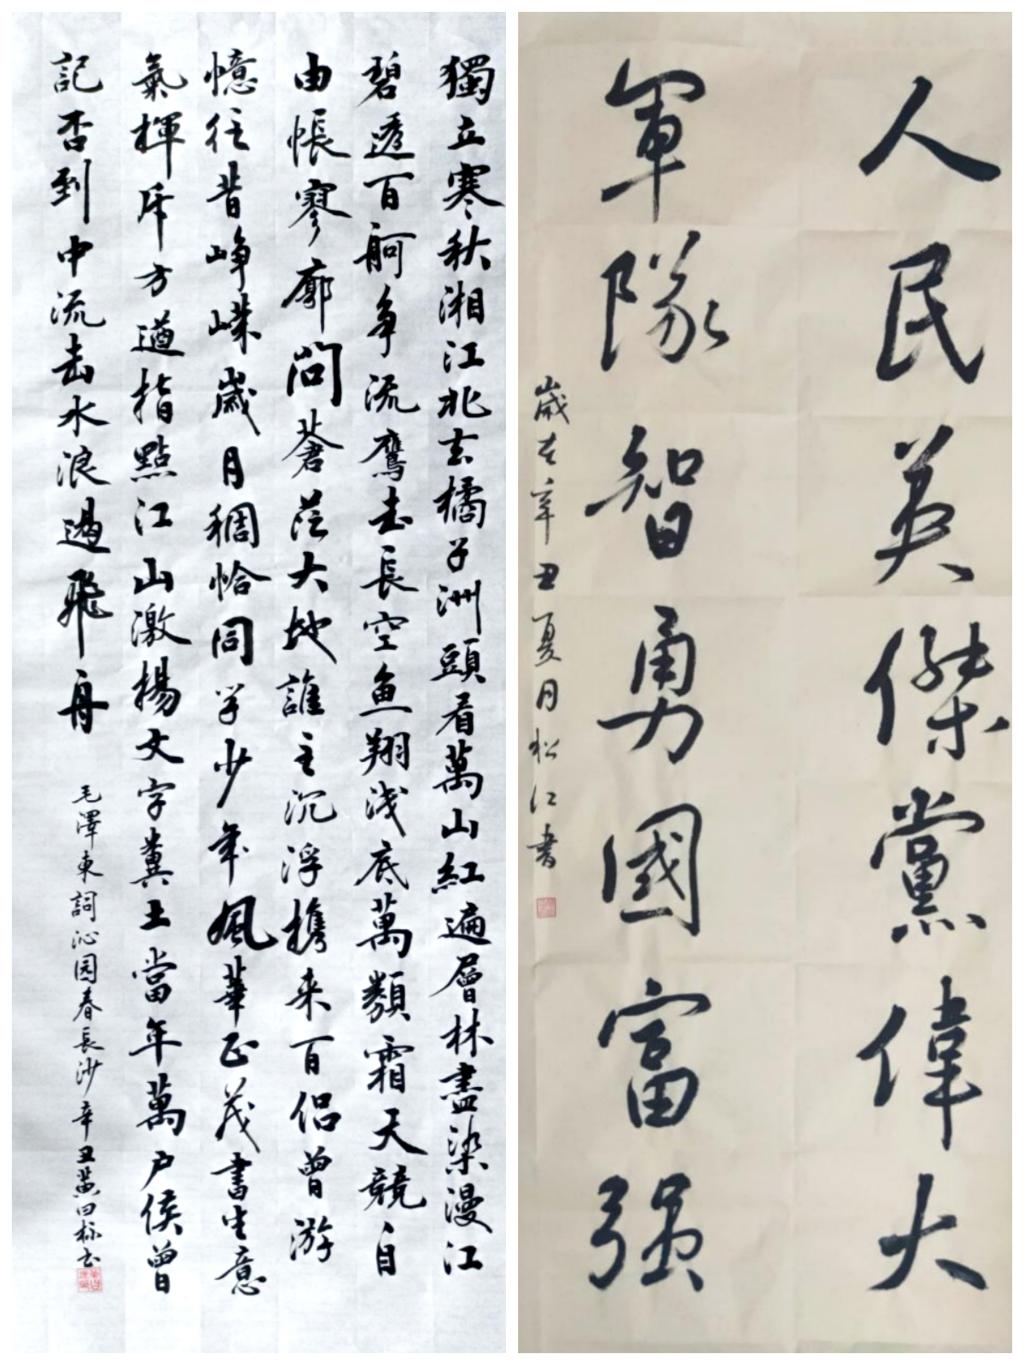 獨立寒秋湘江北去橘子洲頭看萬山紅遍層林盡染漫江
碧透百舸争流鷹击長空鱼翔浅底萬類霜天競自
由悵寥廓問蒼茫大地誰主沉浮携来百侣曾游
憶往昔峥嵘歲月稠恰同学少年風華正茂書生意
氣揮斥方遒指點江山激揚文字糞土當年萬户侯曾
記否到中流击水浪遏飛舟
毛澤東詞沁园春長沙辛丑黄曰
人民英傑黨偉大
軍隊智勇國富强
歲在辛丑夏月松江書